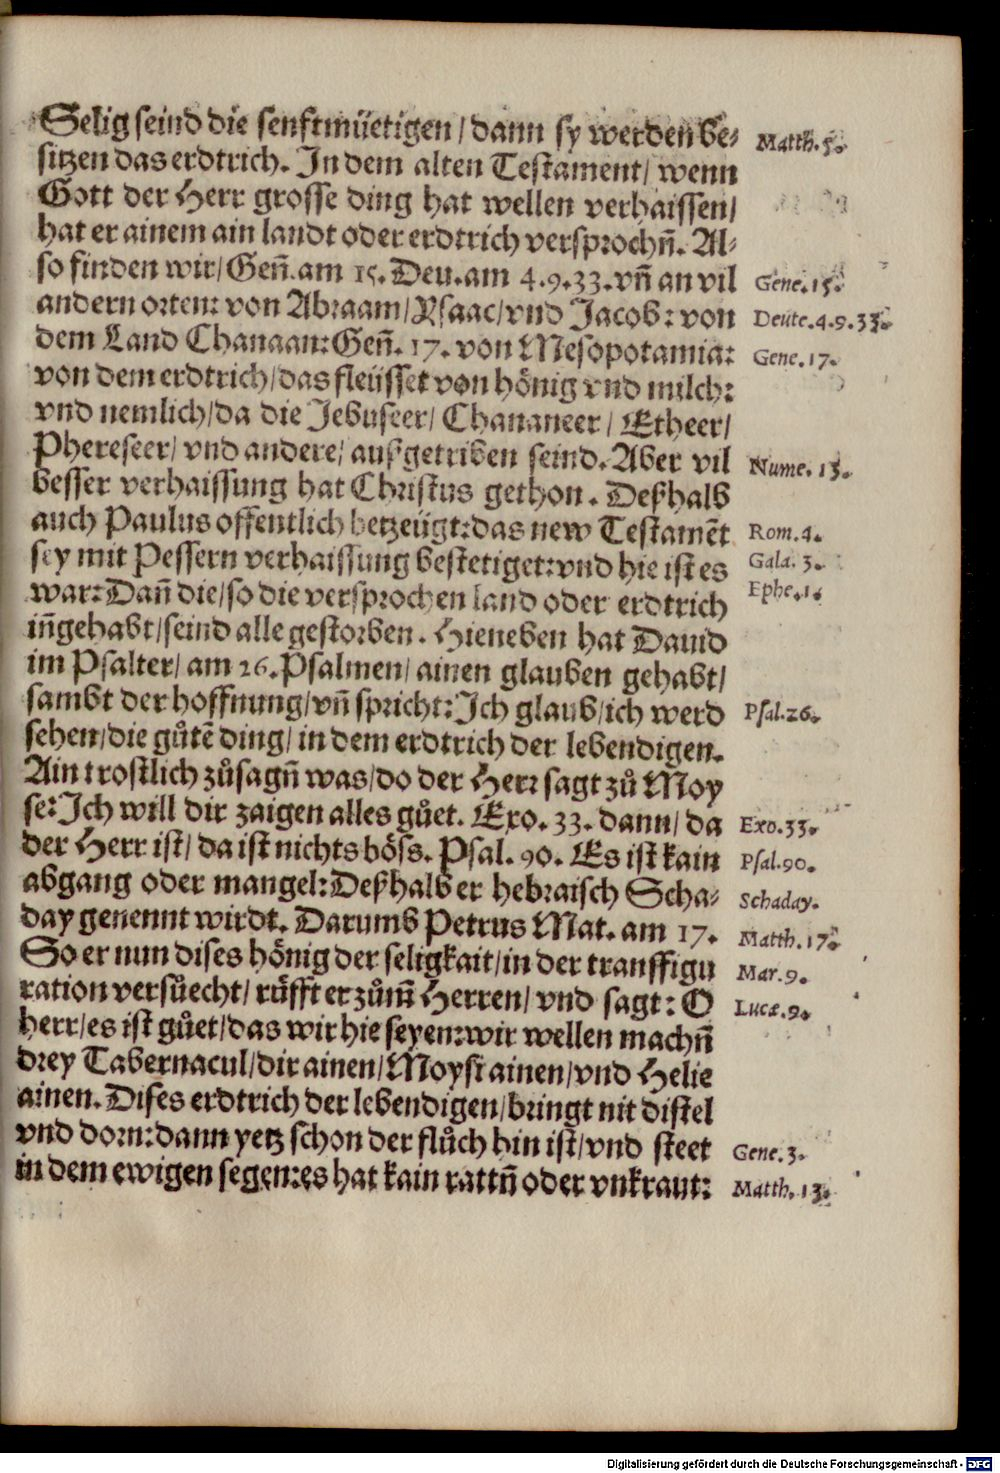 Selig seind die senftmüetigen/ dann sy werden be⸗ Matth. 5.
sitzen das erdtrich. In dem alten Testament/ wenn
Gott der Herr grosse ding hat wellen verhaissen/
hat er ainem ain landt oder erdtrich versprochñ. Al⸗
so finden wir/ Geñ. am 15. Deu. am 4.9.33. vñ an vil Gene. 15.
andern orten: von Abraam/ Ysaac/ vnd Jacob: von Deute. 4.9.33.
dem Land Chanaan: Geñ. 17. von Mesopotamia: Gene. 17.
von dem erdtrich/ das fleüsset von hönig vnd milch:
vnd nemlich/ da die Jebuseer/ Chananeer/ Etheer/
Phereseer/ vnd andere/ außgetriben seind. Aber vil Nume. 13.
besser verhaissung hat Christus gethon. Deßhalb
auch Paulus offentlich betzeügt: das new Testamēt Rom. 4.
sey mit Pessern verhaissung bestetiget: vnd hie ist es Gala. 3.
war: Dañ die/ so die versprochen land oder erdtrich Ephe. 1.
iñgehabt/ seind alle gestorben. Hieneben hat Dauid
im Psalter/ am 26. Psalmen/ ainen glauben gehabt/
sambt der hoffnung/ vñ spricht: Ich glaub/ ich werd Psal. 26.
sehen/ die gůtē ding/ in dem erdtrich der lebendigen.
Ain trostlich zůsagñ was/ do der Herr sagt zů Moy
se: Ich will dir zaigen alles gůet. Exo. 33. dann/ da Exo. 33.
der Herr ist/ da ist nichts böss. Psal. 90. Es ist kain Psal. 90.
abgang oder mangel: Deßhalb er hebraisch Scha⸗ Schaday.
day genennt wirdt. Darumb Petrus Mat. am 17. Matth. 17.
So er nun dises hönig der seligkait/ in der tranffigu Mar. 9.
ration versüecht/ rüfft er zům̃ Herren/ vnd sagt: O Lucæ. 9.
herr/ es ist gůet/ das wir hie seyen: wir wellen machñ
drey Tabernacul/ dir ainen/ Moysi ainen/ vnd Helie
ainen. Dises erdtrich der lebendigen/ bringt nit distel
vnd dorn: dann yetz schon der flůch hin ist/ vnd steet Gene. 3.
in dem ewigen segen: es hat kain rattñ oder vnkraut: Matth. 13.
Digitalisierung gefördert durch die Deutsche Forschungsgemeinschaft - DFG